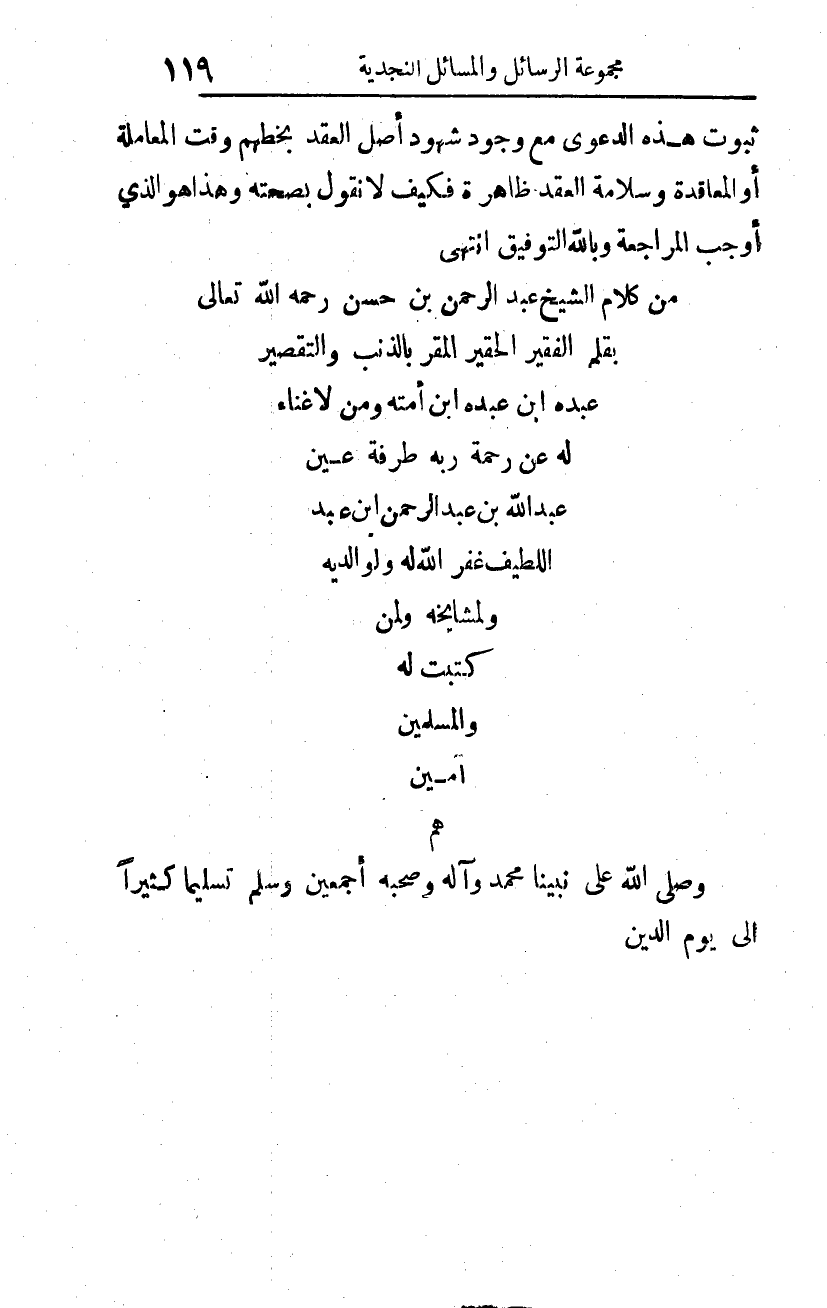 مجموعة الرسائل والمسائل النجدية ١١٩
ثبوت هـذه الدعوى مع وجود شهود أصل العقد بخطهم وقت المعاملة
أو المعاقدة وسلامة العقد ظاهرة فكيف لا نقول بصحته وهذا هو الذي
أوجب المراجعة وبالله التوفيق انتهى
من كلام الشيخ عبد الرحمن بن حسن رحمه الله تعالى
بقلم الفقير الحقير المقر بالذنب والتقصير
عبده ابن عبده ابن أمته ومن لا غناء
له عن رحمة ربه طرفة عـين
عبد الله بن عبد الرحمن ابن عبد
اللطيف غفر الله له ولوالديه
ولمشايخه ولمن
كتبت له
والمسلمين
آمـين
هم
وصلى الله على نبينا محمد وآله وصحبه أجمعين وسلم تسليما كثيراً
الى يوم الدين